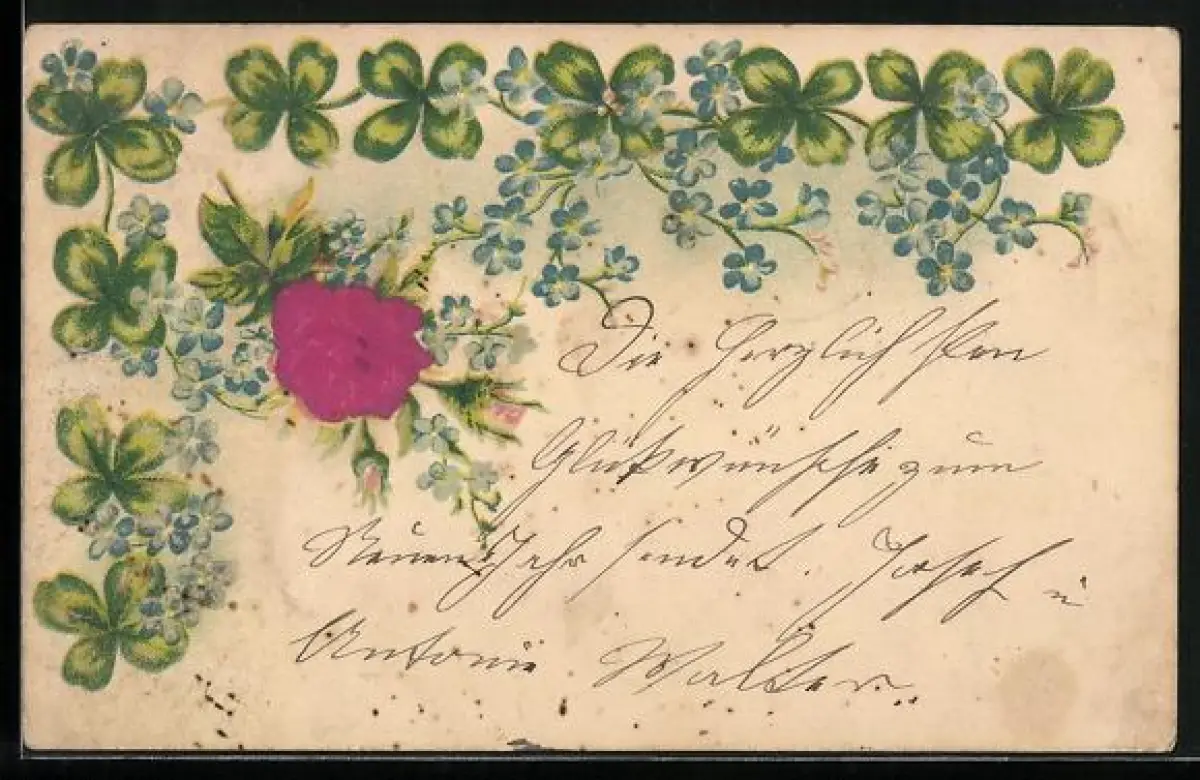 Die Herzlichsten
Glückwünsche zum
Neuen Jahr sendet. Josef u
Antonie Walter.